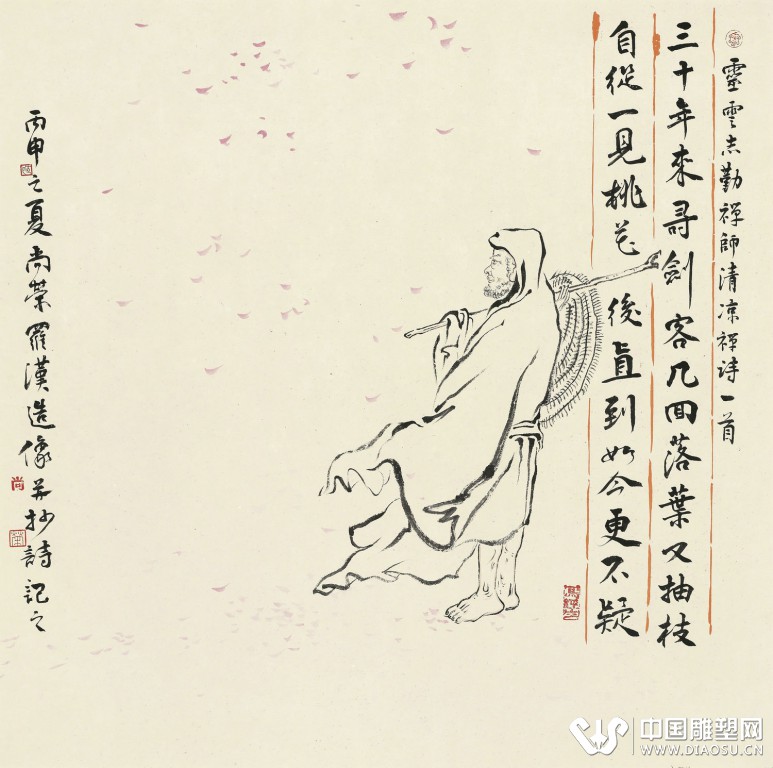 靈雲志勤禅師清凉禅詩一首
三十年來寻劍客几回落葉又抽枝
自從一見桃花後直到如今更不疑
丙申之夏尚荣羅漢造像并抄詩記之
尚
中国雕塑网
WWW.DIAOSU.CN